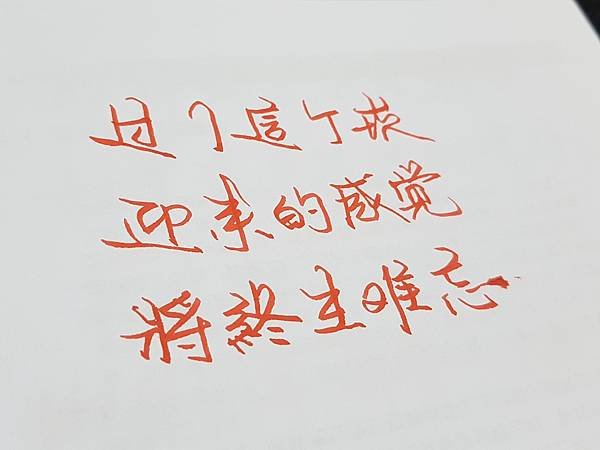 过了這个崁
迎来的感觉
將終生难忘